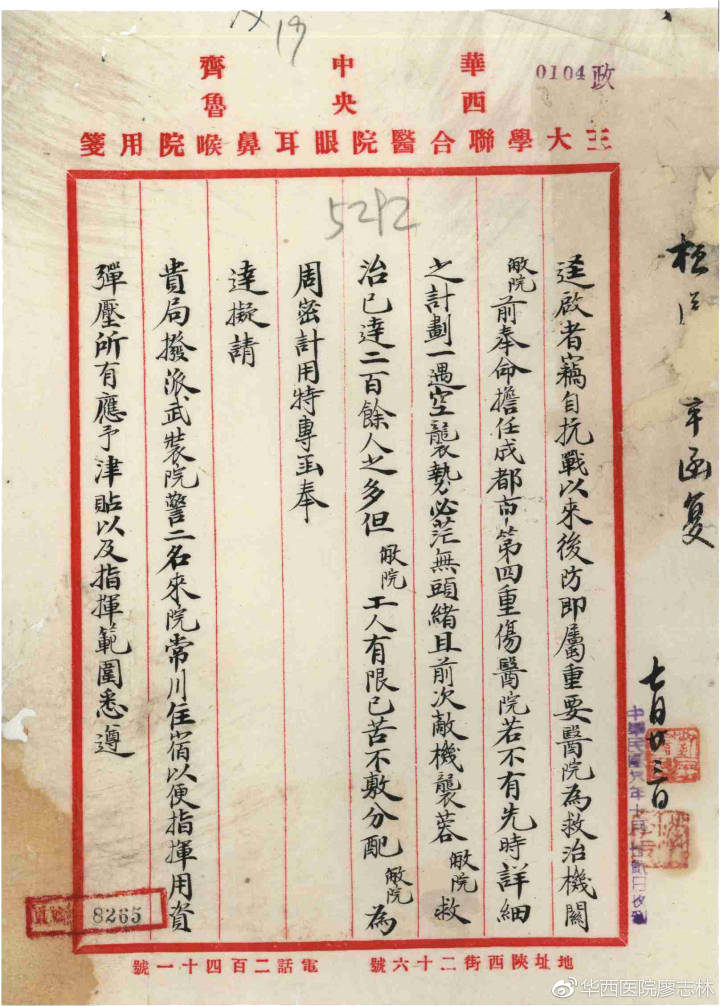 0104 政
華西
中央
齊魯
三大學聯合醫院眼耳鼻喉院用箋
5292
逕啟者竊自抗戰以來後防即屬重要醫院為救治機關
敝院前奉命擔任成都市第四重傷醫院若不有先時詳細
之計劃一遇空襲勢必茫無頭緒且前次敵機襲蓉敝院救
治已達二百餘人之多但敝院工人有限已苦不敷分配敝院為
周密計用特專函奉
達擬請
貴局撥派武裝院警二名來院常川住宿以便指揮用資
彈壓所有應予津貼以及指揮範圍悉遵
七月廿三日
8265
地址陝西街二十六號
電話二百四十一號
@华西医院廖志林